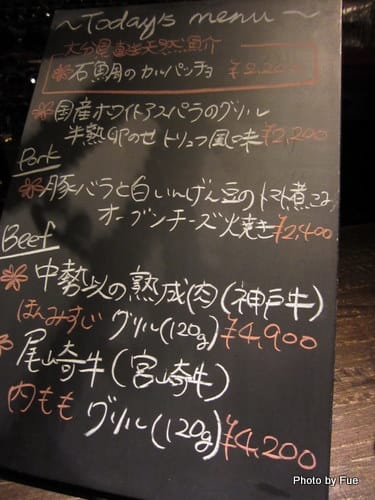 ~Today's menu~
大分県直送天然魚介
※石鯛のカルパッチョ ¥2,200
※国産ホワイトアスパラのグリル
半熟卵のせ トリュフ風味 ¥2,200
Pork
※豚バラと白いんげん豆のトマト煮こみ
オーブンチーズ焼き ¥2,400
Beef
※中勢以の熟成肉(神戸牛)
ほんみすじ グリル(120g) ¥4,900
※尾崎牛(宮崎牛)
内もも グリル(120g) ¥4,200
Photo by Fue